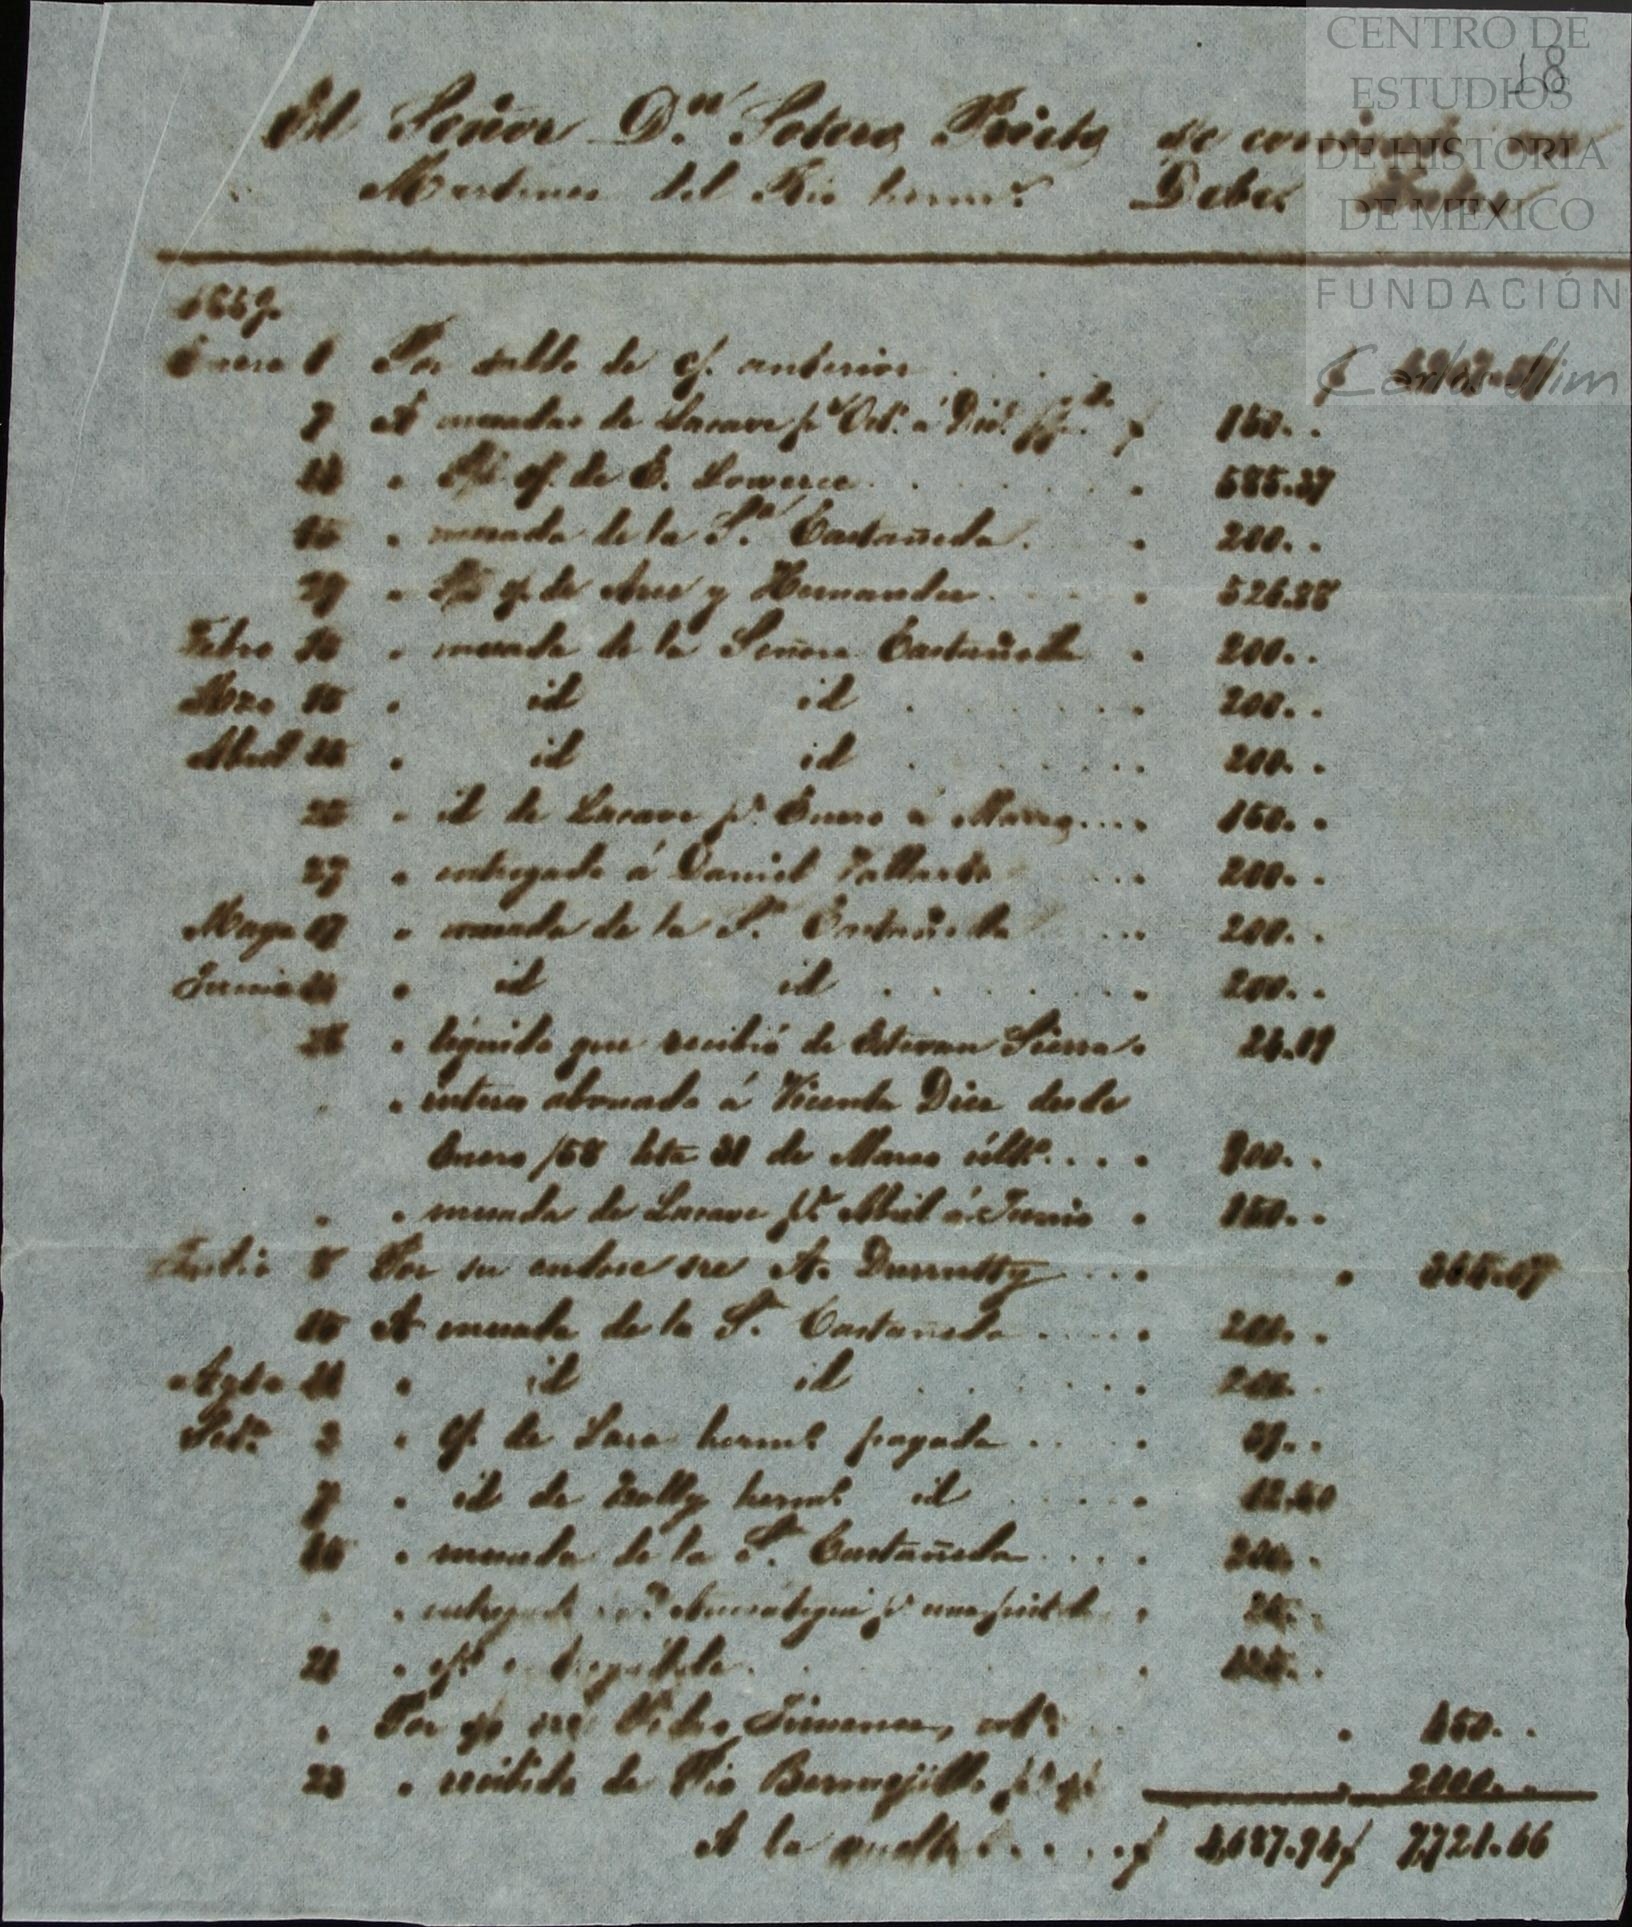 CENTRO DE
ESTUDIOS
DE HISTORIA
DE MÉXICO
FUNDACIÓN
Carlos Slim
18
El Señor Dn. Sotero Prieto de con
Martinez del Rio herms. Debe. Haber
1859.
Enero 1 Por saldo de c/. anterior . . . . $
7 A mesadas de Lacave pr. Oct. á Dic. $ 150. .
" c/. de E. Loweree . . . . . . " 585.37
15 " mesada de la Sa. Castañeda . " 200. .
29 " c/. de Arce y Hernandez . . . " 526.88
Febro 15 " mesada de la Señora Castañeda " 200. .
Mzo 15 " id id . . . . . . . 200. .
Abril 15 " id id . . . . . . . 200. .
25 " id de Lacave pr. Enero á Marzo . . . . 150. .
27 " entregado á Daniel . . . 200. .
Mayo 17 " mesada de la Sa. Castañeda . . . 200. .
Junio " id id . . . . . . . 200. .
28 " líquido que recibió de Estevan Sierra " 24.09
" " interes abonado á Vicente Diez desde
Enero /58 hta 31 de Marzo últo. . . . " 900. .
" " mesada de Lacave pr. Abril á Junio " 150. .
Julio 8 Por su endose sre A. Durrutty . . . . "
15 A mesada de la Sa. Castañeda . . . . . 200. .
Agto " id id . . . . . . . 200. .
Sete. 2 " c/. de Lara herms. pagada . . " 39. .
7 " id de herms. id . . . " 12.60
15 " mesada de la Sa. Castañeda . . . " 200. .
" " pr. una "
21 " . "
" Por Pedro Jimenez, " 450. .
23 " recibido de Pio Bermejillo " 2000. .
A la vuelta . . . . . $ 4,687.94 $ 7,721.66